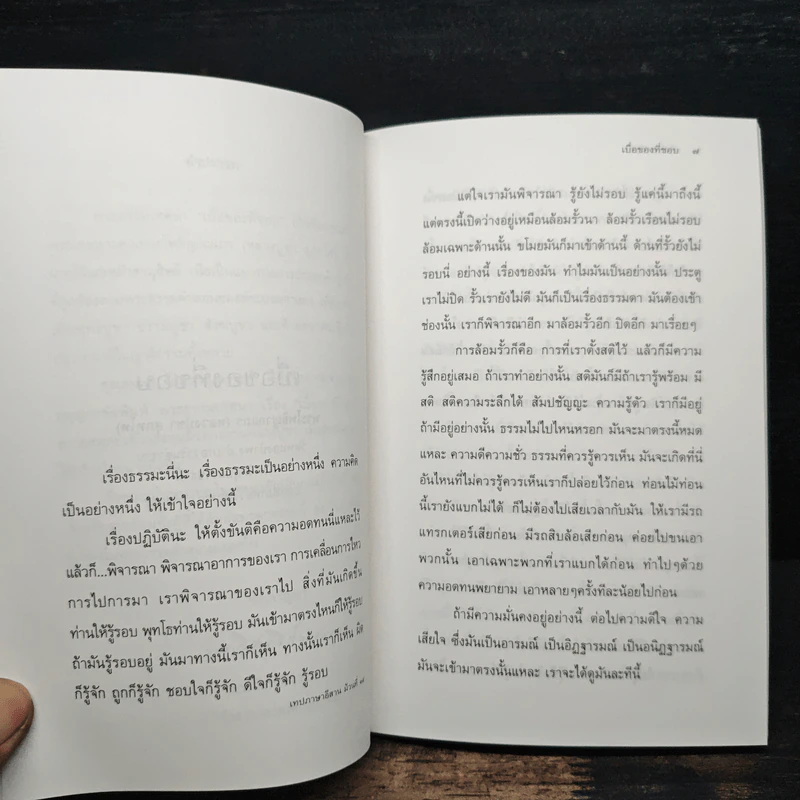 เรื่องธรรมะนี่นะ เรื่องธรรมะเป็นอย่างหนึ่ง ความคิด
เป็นอย่างหนึ่ง ให้เข้าใจอย่างนี้
เรื่องปฏิบัตินะ ให้ตั้งขันติคือความอดทนนี่แหละไว้
แล้วก็...พิจารณา พิจารณาอาการของเรา การเคลื่อนการไหว
การไปการมา เราพิจารณาของเราไป สิ่งที่มันเกิดขึ้น
ท่านให้รู้รอบ พุทโธท่านให้รู้รอบ มันเข้ามาตรงไหนก็ให้รู้รอบ
ถ้ามันรู้รอบอยู่ มันมาทางนี้เราก็เห็น ทางนั้นเราก็เห็น ผิด
ก็รู้จัก ถูกก็รู้จัก ชอบใจก็รู้จัก ดีใจก็รู้จัก รู้รอบ
เทปภาษาอีสาน
เบื่อของที่ชอบ ๗
แต่ใจเรามันพิจารณา รู้ยังไม่รอบ รู้แค่นี้มาถึงนี้
แต่ตรงนี้เปิดว่างอยู่เหมือนล้อมรั้วนา ล้อมรั้วเรือนไม่รอบ
ล้อมเฉพาะด้านนั้น ขโมยมันก็มาเข้าด้านนี้ ด้านที่รั้วยังไม่
รอบนี่ อย่างนี้ เรื่องของมัน ทำไมมันเป็นอย่างนั้น ประตู
เราไม่ปิด รั้วเรายังไม่ดี มันก็เป็นเรื่องธรรมดา มันต้องเข้า
ช่องนั้น เราก็พิจารณาอีก มาล้อมรั้วอีก ปิดอีก มาเรื่อยๆ
การล้อมรั้วก็คือ การที่เราตั้งสติไว้ แล้วก็มีความ
รู้สึกอยู่เสมอ ถ้าเราทำอย่างนั้น สติมันก็มีถ้าเรารู้พร้อม มี
สติ สติความระลึกได้ สัมปชัญญะ ความรู้ตัว เราก็มีอยู่
ถ้ามีอยู่อย่างนั้น ธรรมไม่ไปไหนหรอก มันจะมาตรงนี้หมด
แหละ ความดีความชั่ว ธรรมที่ควรรู้ควรเห็น มันจะเกิดที่นี่
อันไหนที่ไม่ควรรู้ควรเห็นเราก็ปล่อยไว้ก่อน ท่อนไม้ท่อน
นี้เรายังแบกไม่ได้ ก็ไม่ต้องไปเสียเวลากับมัน ให้เรามีรถ
แทรกเตอร์เสียก่อน มีรถสิบล้อเสียก่อน ค่อยไปขนเอา
พวกนั้น เอาเฉพาะพวกที่เราแบกได้ก่อน ทำไปๆด้วย
ความอดทนพยายาม เอาหลายๆครั้งทีละน้อยไปก่อน
ถ้ามีความมั่นคงอยู่อย่างนี้ ต่อไปความดีใจ ความ
เสียใจ ซึ่งมันเป็นอารมณ์ เป็นอิฏฐารมณ์ เป็นอนิฏฐารมณ์
มันจะเข้ามาตรงนั้นแหละ เราจะได้ดูมันละทีนี้